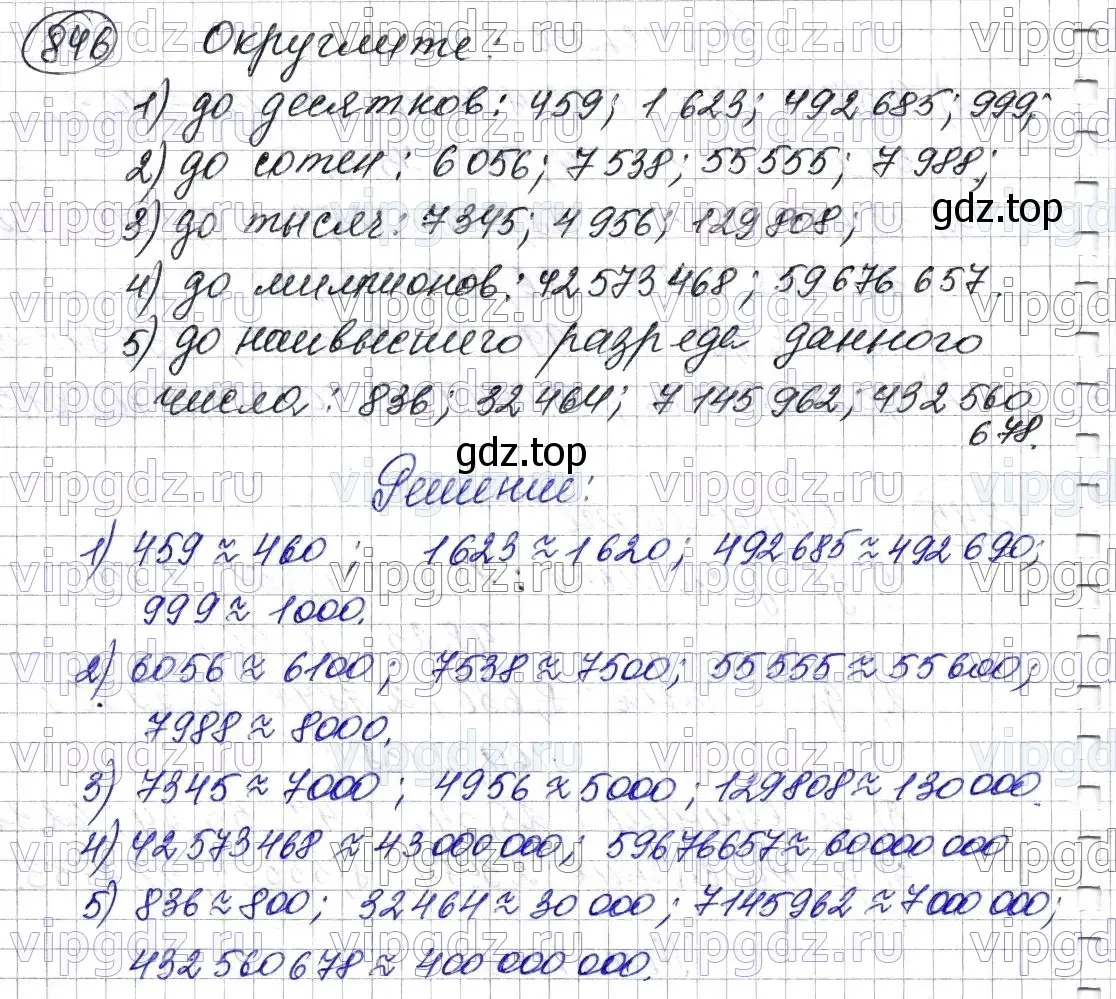 846 Округлите:
1) до десятков: 459; 1 623; 492 685; 999;
2) до сотен: 6 056; 7 538; 55 555; 7 988;
gdz.top
3) до тысяч: 7 345; 4 956; 129 808;
4) до миллионов: 42 573 468; 59 676 657.
5) до наивысшего разряда данного
числа: 836; 32 464; 7 145 962; 432 560
678.
gdz.top
Решение:
1) 459 ≈ 460; 1623 ≈ 1620; 492 685 ≈ 492 690;
999 ≈ 1000.
2) 6056 ≈ 6100; 7538 ≈ 7500; 55 555 ≈ 55 600;
7988 ≈ 8000.
3) 7345 ≈ 7000; 4956 ≈ 5000; 129808 ≈ 130 000
4) 42 573 468 ≈ 43 000 000; 59676657 ≈ 60 000 000
5) 836 ≈ 800; 32464 ≈ 30 000; 7145962 ≈ 7 000 000;
432 560 678 ≈ 400 000 000.
vipgdz.ru